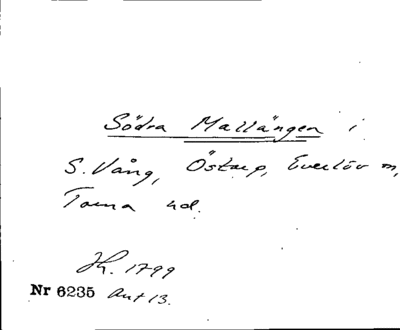 Södra Mallängen i
S. Vång, Östarp, Everlöv m,
Torna hd.
Jh. 1799
Nr 6235 Ant 13.